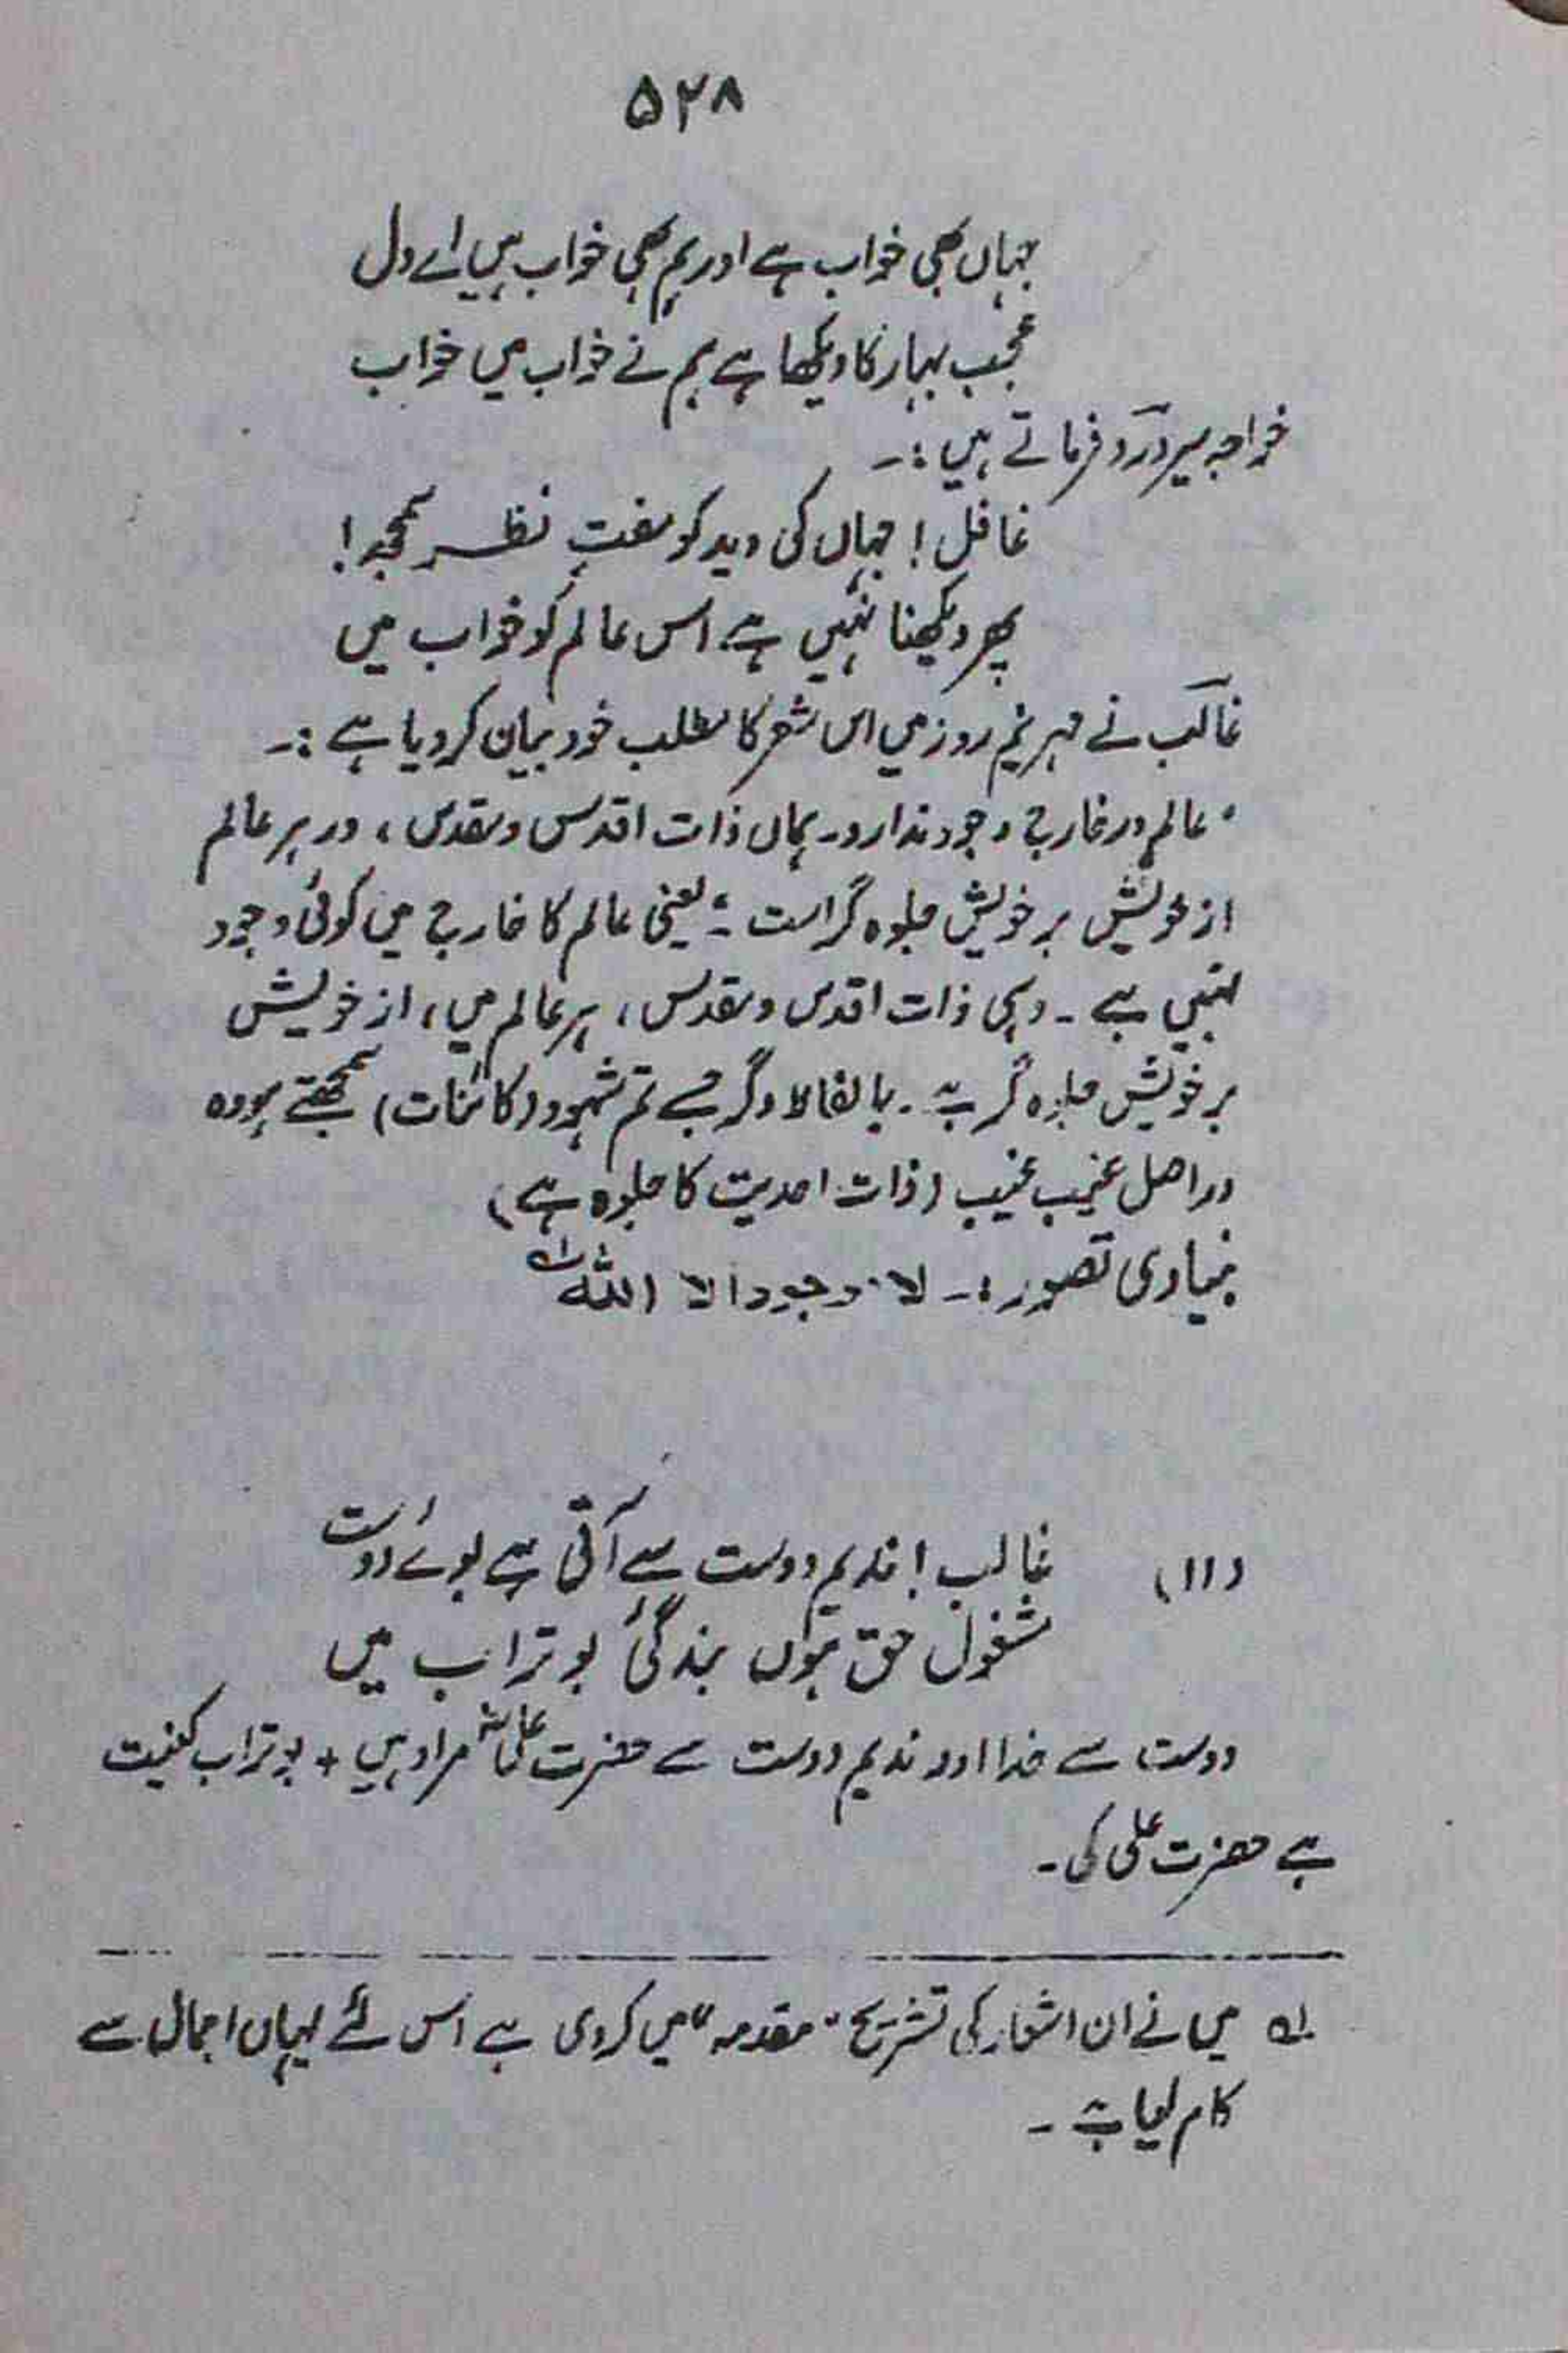 ۵۲۸
جہاں بھی خواب ہے اور ہم بھی خواب ہیں اے دل
عجب بہار کا دیکھا ہے ہم نے خواب میں خواب
خواجہ میر درد فرماتے ہیں :۔
غافل ! جہاں کی دید کو مفت نظر سمجھ !
پھر دیکھنا نہیں ہے اس عالم کو خواب میں
غالب نے مہر نیم روز میں اس شعر کا مطلب خود بیان کر دیا ہے :۔
"عالم در خارج وجود ندارد۔ ہماں ذات اقدس ومقدس ، در ہر عالم
از خویش بر خویش جلوہ گر است"۔ یعنی عالم کا خارج میں کوئی وجود
نہیں ہے ۔ وہی ذات اقدس ومقدس ، ہر عالم میں ، از خویش
بر خویش جلوہ گر ہے ۔ بالفاظ دگر جسے تم شہود (کائنات) سمجھتے ہو وہ
دراصل غیب غیب (ذات احدیت کا جلوہ ہے)
بنیادی تصور :۔ لا وجود الا اللہ لہ
(۱۱) غالب ! ندیم دوست سے آتی ہے بوئے دوست
مشغول حق ہوں بندگیٔ بو تراب میں
دوست سے خدا اور ندیم دوست سے حضرت علیؓ مراد ہیں + بو تراب کنیت
ہے حضرت علی کی ۔
لہ میں نے ان اشعار کی تشریح "مقدمہ" میں کر دی ہے اس لئے یہاں اجمال سے
کام لیا ہے ۔